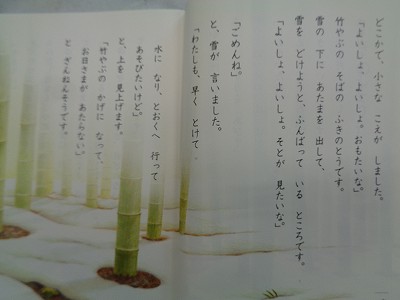 どこかで、小さな こえが しました。
「よいしょ、よいしょ。おもたいな。」
竹やぶの そばの ふきのとうです。
雪の 下に あたまを 出して、
雪を どけようと、ふんばって いる ところです。
「よいしょ、よいしょ。そとが 見たいな。」
「ごめんね。」
と、雪が 言いました。
「わたしも、早く とけて
水に なり、とおくへ 行って
あそびたいけど。」
と、上を 見上げます。
「竹やぶの かげに なって、
お日さまが あたらない。」
と、ざんねんそうです。